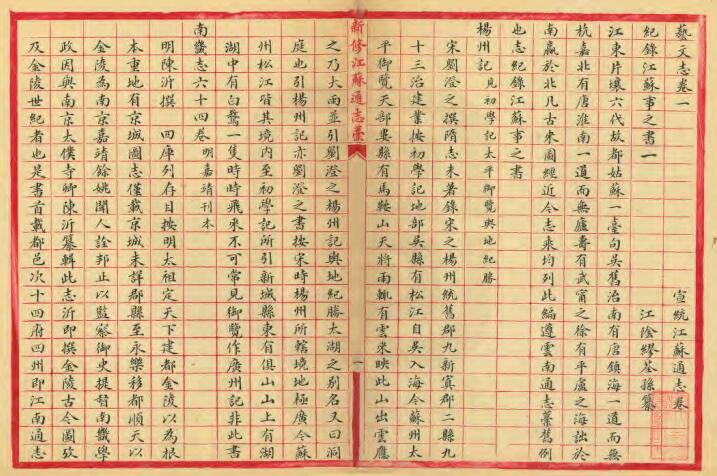 藝文志卷一　宣統江蘇通志卷
紀錄江蘇事之書一　江陰繆荃孫纂
江東片壤六代故都姑蘇一臺句吳舊治南有唐鎮海一道而無
杭嘉北有唐淮南一道而無廬壽有武甯之徐有平盧之海詘於
南贏於北凡古來圖經近今志乘均列此編遵雲南通志藁舊例
也志紀錄江蘇事之書
揚州記　見初學記太平御覽輿地紀勝
宋劉澄之撰隋志未著錄宋之揚州統舊郡九新寘郡二縣九
十三治建業按初學記地部吳縣有松江自吳入海今蘇州太
平御覽天部婁縣有馬鞍山天將雨輒有雲來映此山出雲應
新修江蘇通志藁
一
之乃大雨並引劉澄之揚州記輿地紀勝太湖之別名又曰洞
庭也引揚州記亦劉澄之書按宋時揚州所轄境地極廣今蘇
州松江皆其境內至初學記所引新城縣東有俱山山上有湖
湖中有白鵞一隻時時飛來不可常見御覽作廣州記非此書
南畿志六十四卷　明嘉靖刊本
明陳沂撰　四庫列存目按明太祖定天下建都金陵以為根
本重地有京城圖志僅載京城未詳郡縣至永樂移都順天以
金陵為南京嘉靖餘姚聞人詮邦正以監察御史提督南畿學
政因與南京太僕寺卿陳沂纂輯此志沂即撰金陵古今圖攷
及金陵世紀者也是書首載都邑次十四府四州即江南通志